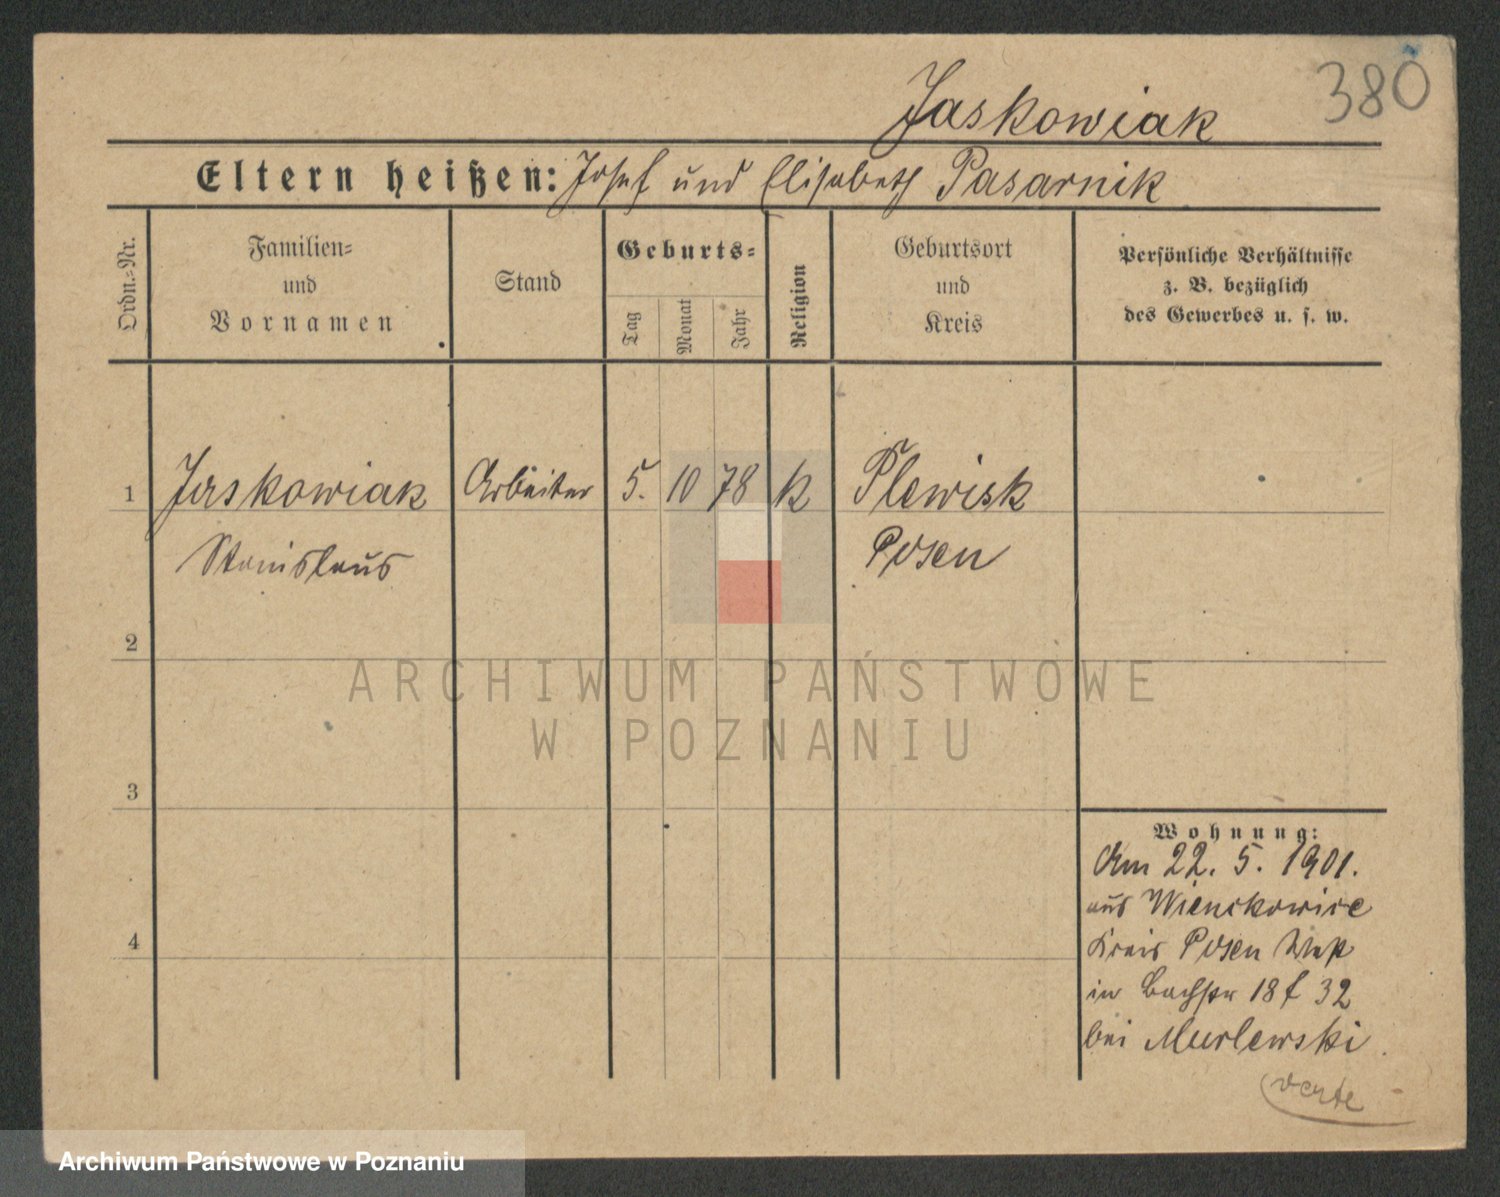 Jaskowiak
380
Eltern heißen: Josef und Elisabeth Pasarnik
Ordn.-Nr.
Familien-
und
Vornamen
Stand
Geburts-
Tag
Monat
Jahr
Religion
Geburtsort
und
Kreis
Persönliche Verhältnisse
z. B. bezüglich
des Gewerbes u. s. w.
1 Jaskowiak Arbeiter 5. 10 78 k Plewisk
Stanislaus Posen
2
3
4
Wohnung:
Am 22. 5. 1901.
aus Wienckowice
Kreis Posen West
in Bachstr 18 f 32
bei Murlewski
verte
ARCHIWUM PAŃSTWOWE
W POZNANIU
Archiwum Państwowe w Poznaniu